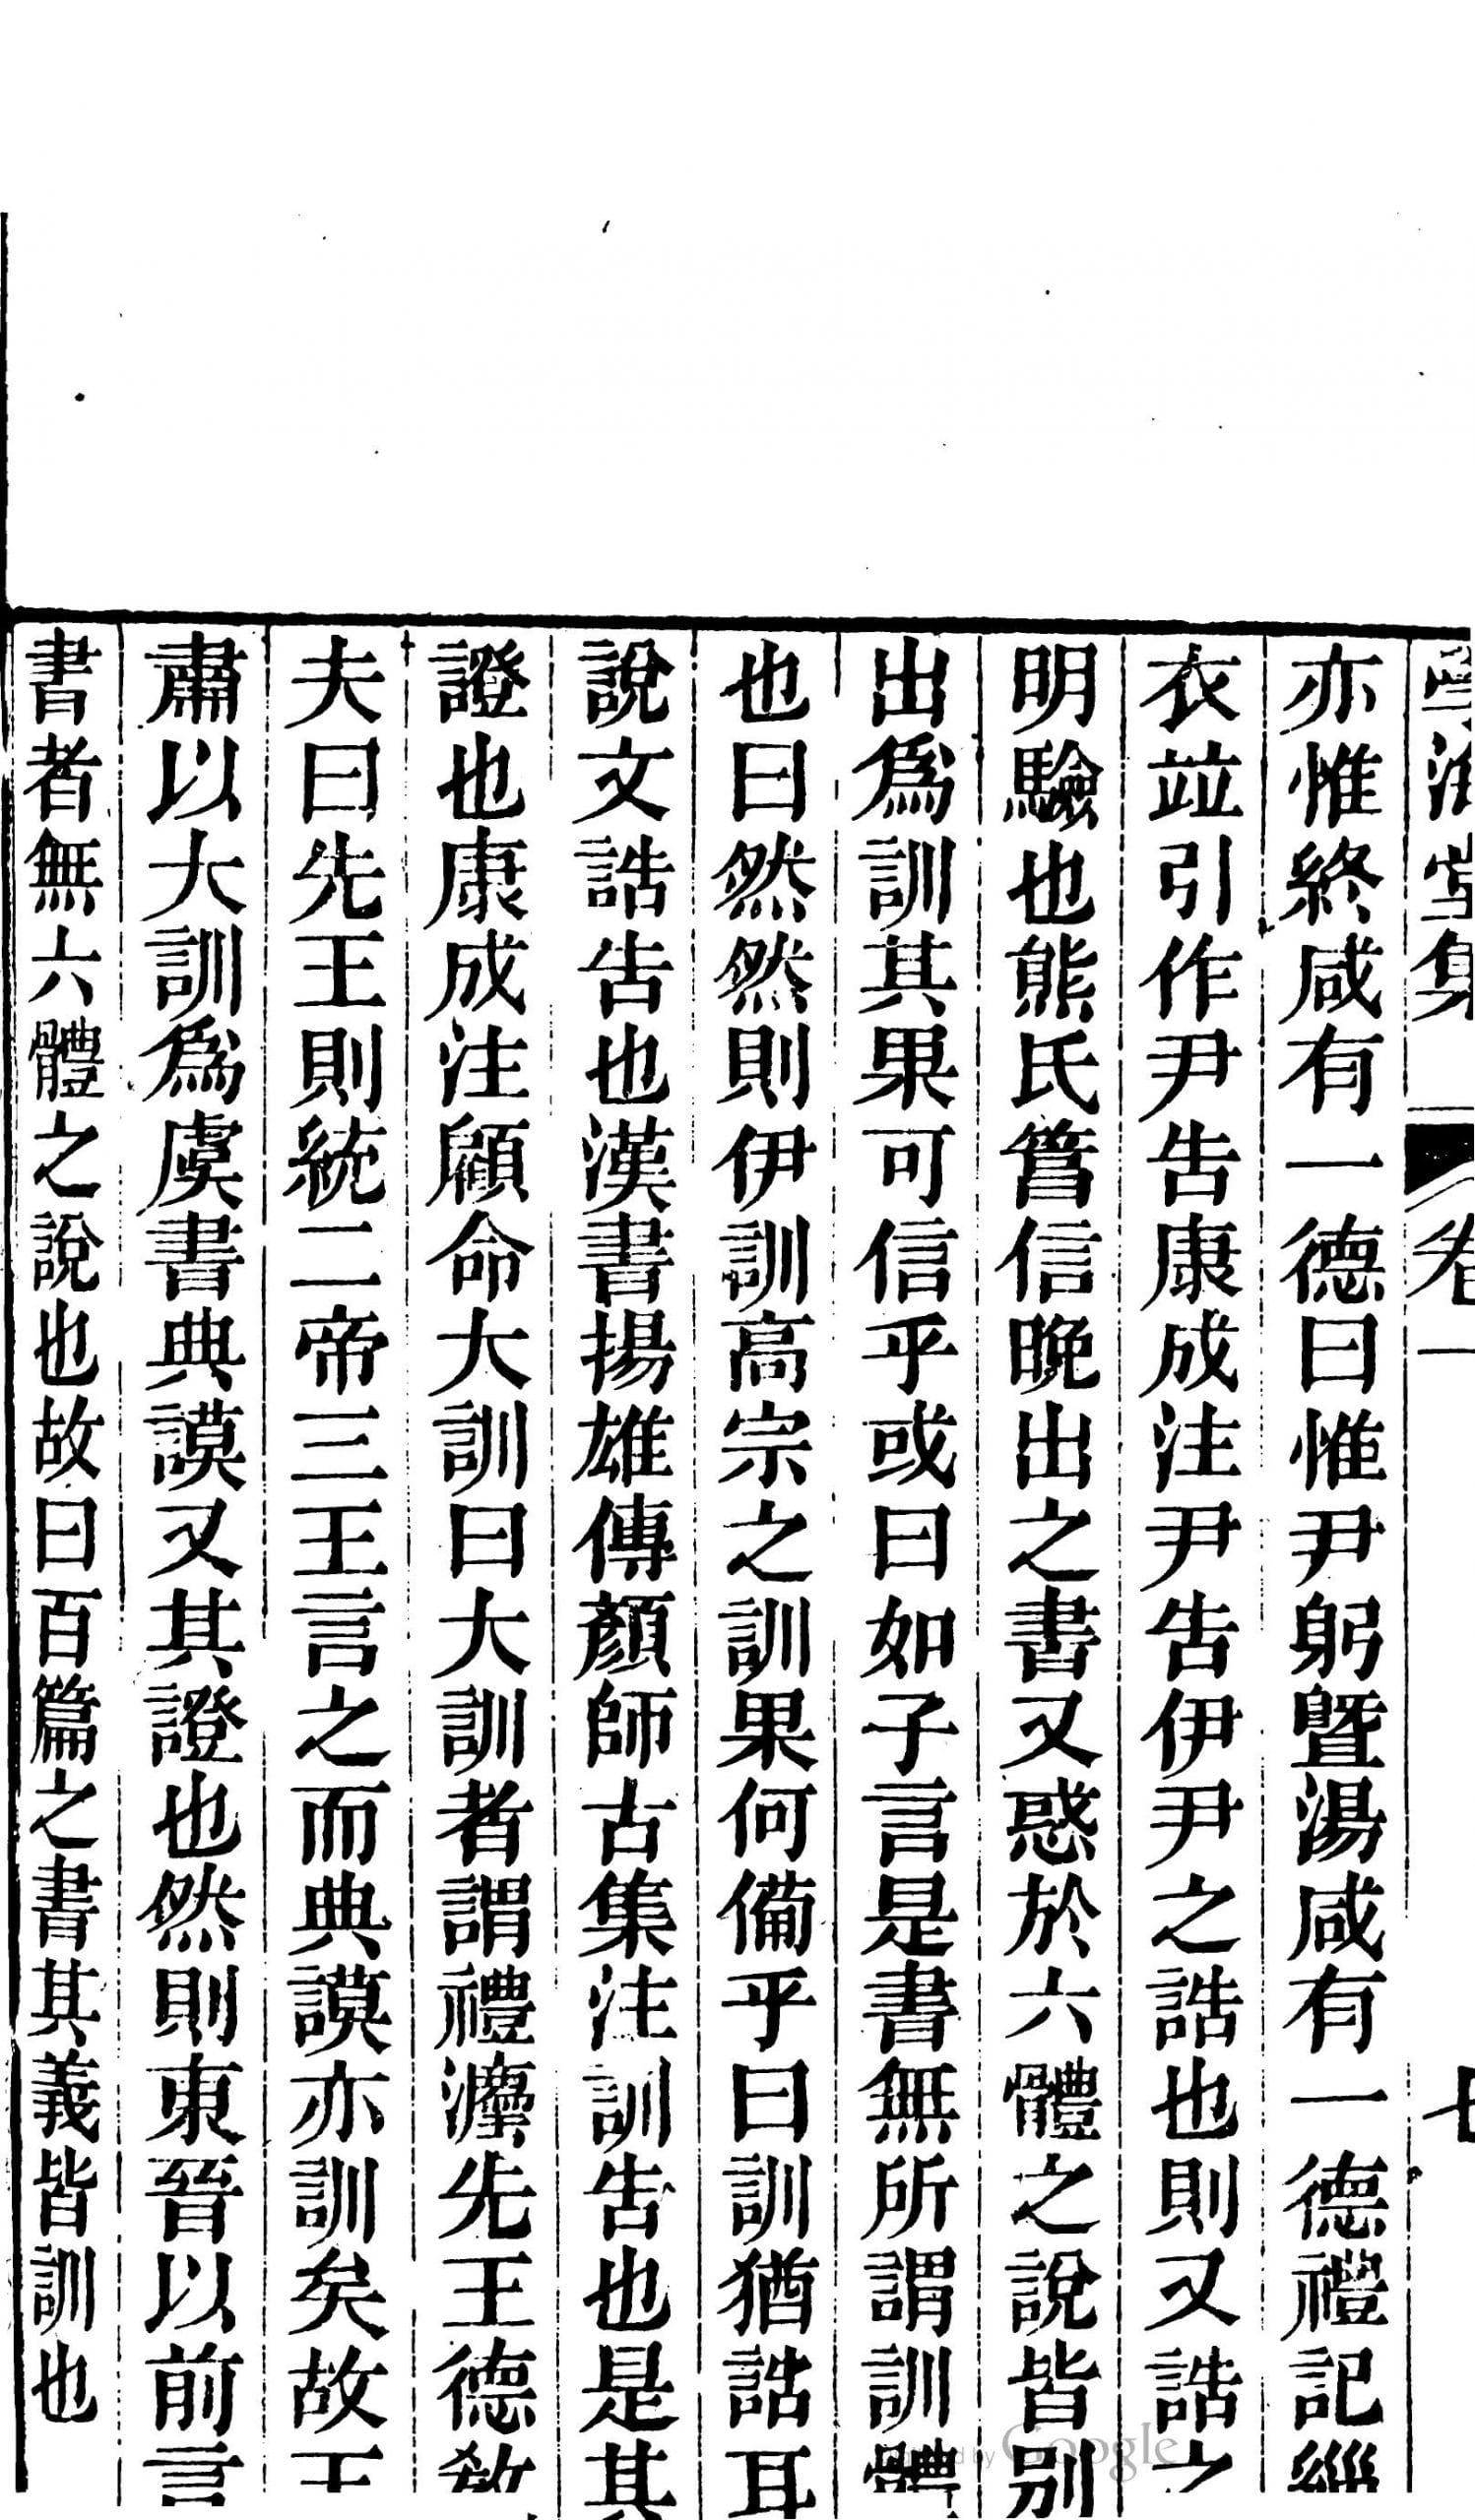 學海堂集 卷一 七
亦惟終咸有一德曰惟尹躬曁湯咸有一德禮記緇
衣竝引作尹吿康成注尹吿伊尹之誥也則又誥之
明驗也熊氏篤信晚出之書又惑於六體之說皆別
出爲訓其果可信乎或曰如子言是書無所謂訓體
也曰然然則伊訓高宗之訓果何備乎曰訓猶誥耳
說文誥吿也漢書揚雄傳顏師古集注訓吿也是其
證也康成注顧命大訓曰大訓者謂禮灋先王德敎
夫曰先王則統二帝三王言之而典謨亦訓矣故王
肅以大訓爲虞書典謨又其證也然則東晉以前言
書者無六體之說也故曰百篇之書其義皆訓也
Google